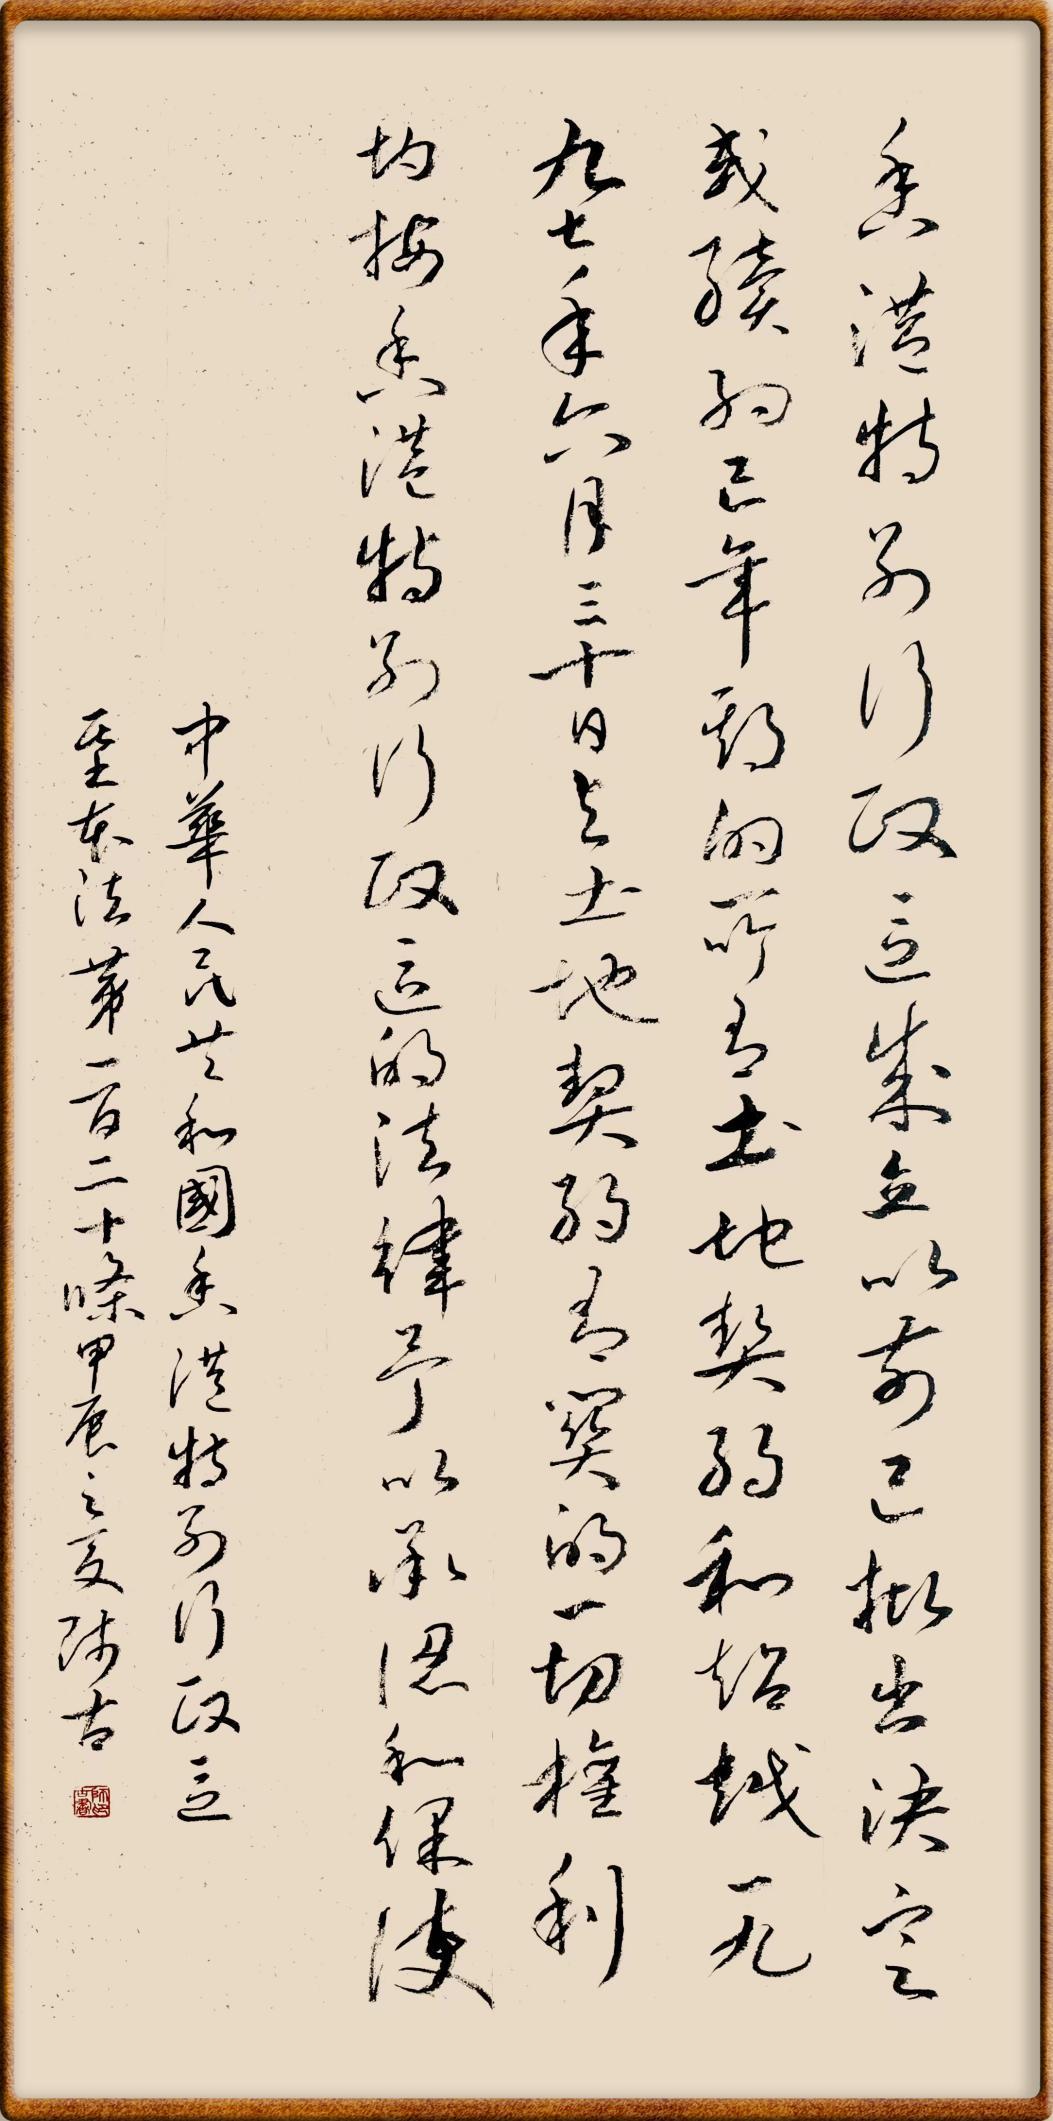 香港特別行政區成立以前已批出決定
或續約已年期的所有土地契約和超越一九
九七年六月三十日與土地契約有關的一切權利
均按香港特別行政區的法律予以承認和保護
中華人民共和國香港特別行政區
基本法第一百二十條甲辰之夏陳古